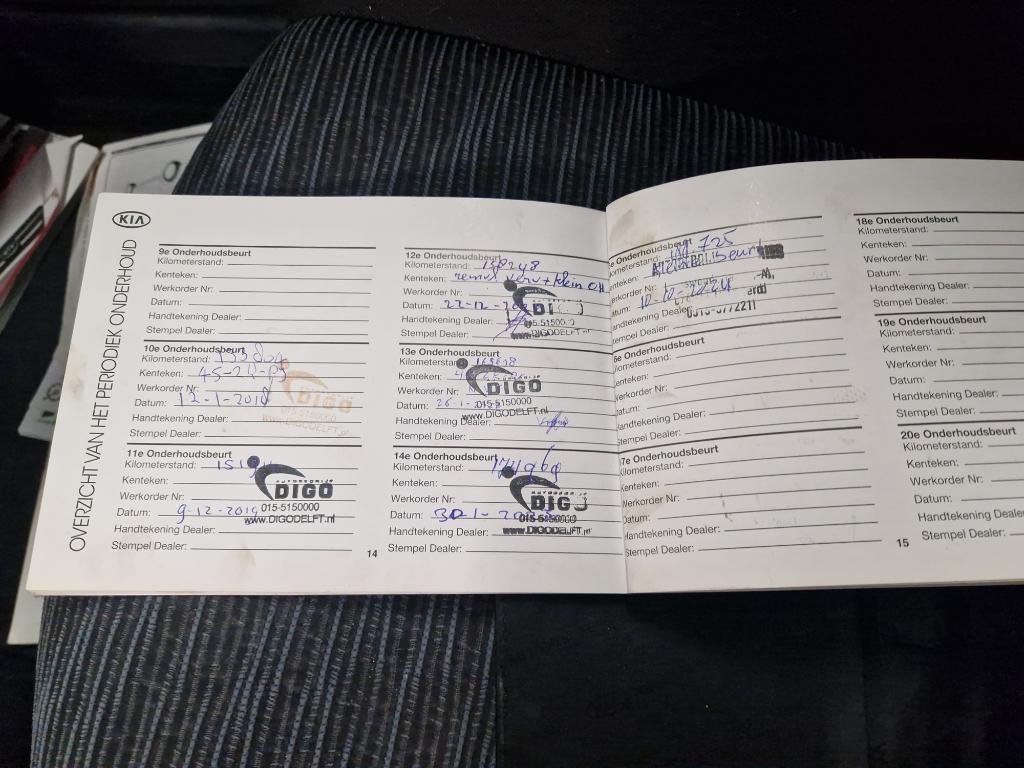 KIA
OVERZICHT VAN HET PERIODIEK ONDERHOUD
9e Onderhoudsbeurt
Kilometerstand:
Kenteken:
Werkorder Nr:
Datum:
Handtekening Dealer:
Stempel Dealer:
10e Onderhoudsbeurt
Kilometerstand:
Kenteken:
Werkorder Nr:
Datum: 12-1-2018
Handtekening Dealer:
Stempel Dealer:
DIGO
015-5150000
www.DIGODELFT.nl
11e Onderhoudsbeurt
Kilometerstand:
Kenteken:
Werkorder Nr:
Datum: 9-12-2019
Handtekening Dealer:
Stempel Dealer:
DIGO
015-5150000
www.DIGODELFT.nl
14
12e Onderhoudsbeurt
Kilometerstand: 158248
Kenteken:
Werkorder Nr:
Datum: 22-12-
Handtekening Dealer:
Stempel Dealer:
www.DIGODELFT.nl
13e Onderhoudsbeurt
Kilometerstand:
Kenteken:
Werkorder Nr:
Datum: 26-1-
Handtekening Dealer:
Stempel Dealer:
DIGO
015-5150000
www.DIGODELFT.nl
14e Onderhoudsbeurt
Kilometerstand:
Kenteken:
Werkorder Nr:
Datum: 30-1-
Handtekening Dealer:
Stempel Dealer:
015-5150000
www.DIGODELFT.nl
e Onderhoudsbeurt
ometerstand:
enteken:
erkorder Nr:
atum: 10-10-
andtekening Dealer:
tempel Dealer:
6e Onderhoudsbeurt
Kilometerstand:
enteken:
Werkorder Nr:
atum:
Handtekening Dealer:
Stempel Dealer:
7e Onderhoudsbeurt
Kilometerstand:
Kenteken:
Werkorder Nr:
Datum:
Handtekening Dealer:
Stempel Dealer:
15
18e Onderhoudsbeurt
Kilometerstand:
Kenteken:
Werkorder Nr:
Datum:
Handtekening Dealer:
Stempel Dealer:
19e Onderhoudsbeurt
Kilometerstand:
Kenteken:
Werkorder Nr:
Datum:
Handtekening Dealer:
Stempel Dealer:
20e Onderhoudsbeurt
Kilometerstand:
Kenteken:
Werkorder Nr:
Datum:
Handtekening Dealer
Stempel Dealer: